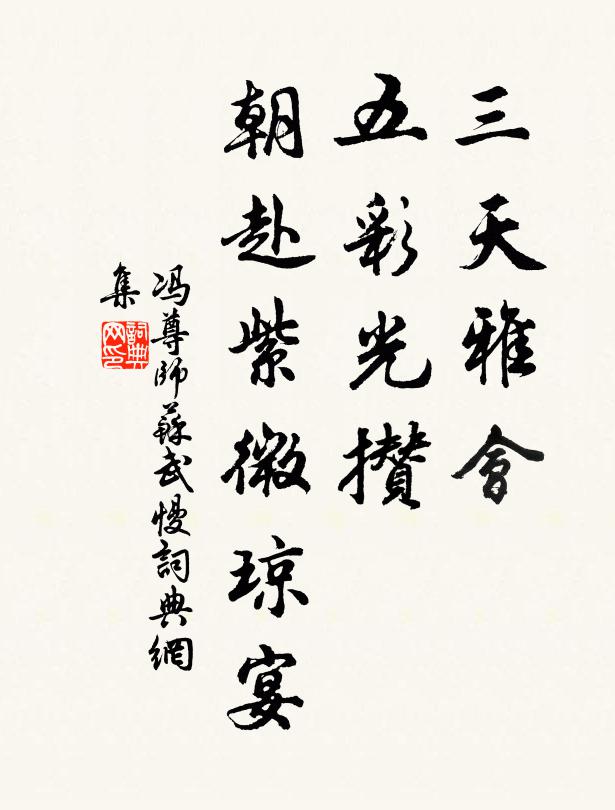 三天雅會
五彩光攢
朝赴紫微琼宴
冯尊師蘇武慢詞典網
集
詞典
网印